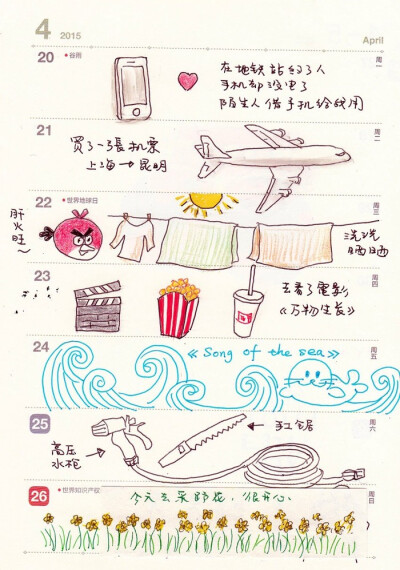 4 2015 April
20 谷雨 周一
在地铁站约了人
手机却没电了
陌生人借手机给我用
21 周二
買了一張机票
上海→昆明
22 世界地球日 周三
肝火旺~
洗洗
晒晒
23 周四
去看了電影
《万物生长》
24 周五
《Song of the sea》
25 周六
高压
水枪
手工锯
26 世界知识产权 周日
今天去采野花，很开心。